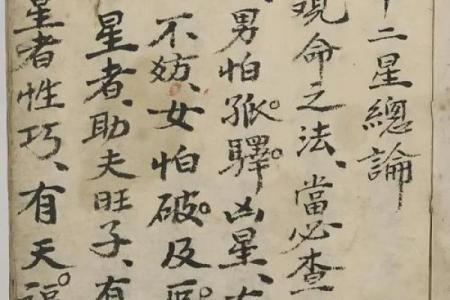 十二星總論
觀命之法、當必查
男怕孤。驛。凶星、
不妨、女怕破。及厄。
星者、助夫旺子、有
星者性巧、有天福。